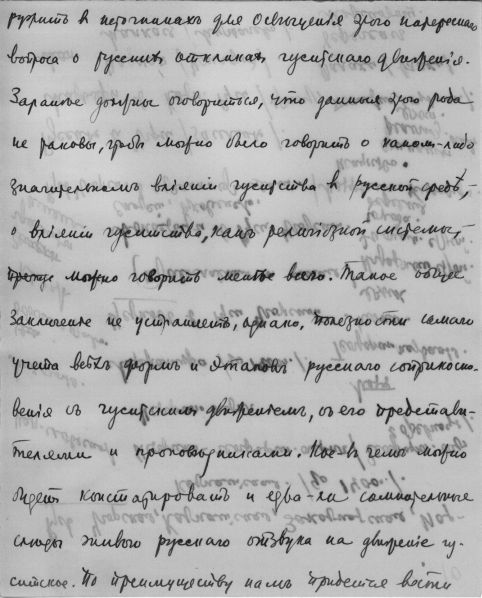 рузить в источниках для освещения этого интересного
вопроса о русских откликах гуситского движения.
Заранее должны оговориться, что данныя этого рода
не таковы, чтобы можно было говорить о каком-либо
значительном влiянiи гуситства в русской средѣ, –
о влiянiи гуситства, как религiозной системы,
можно говорить менѣе всего. Такое общее
заключенiе не устраняет, однако, полезности самаго
учета всѣх форм и этапов русскаго соприкосно-
венiя съ гуситским движенiем, съ его представи-
телями и проповѣдниками. Кое-в чем можно
будет констатировать и едва-ли сомнительные
слѣды живого русскаго отзвука на движенiе гу-
ситское. По преимуществу нам придется вести